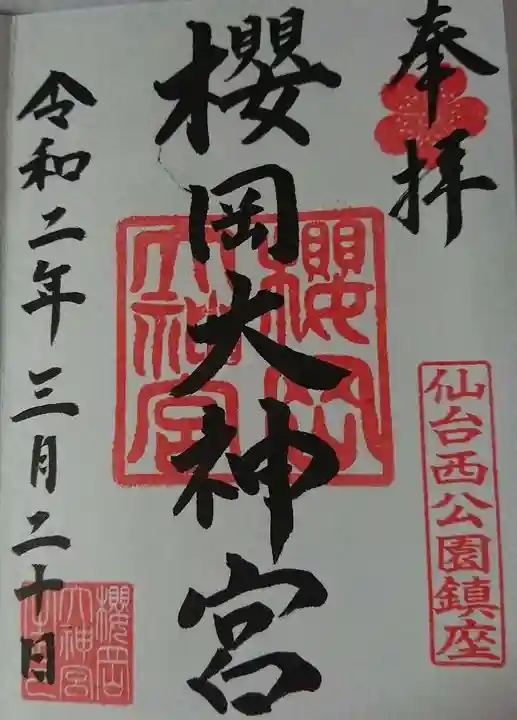 奉拝
仙台西公園鎮座
櫻岡大神宮
櫻岡大神宮
令和二年三月二十日
櫻岡
大神宮